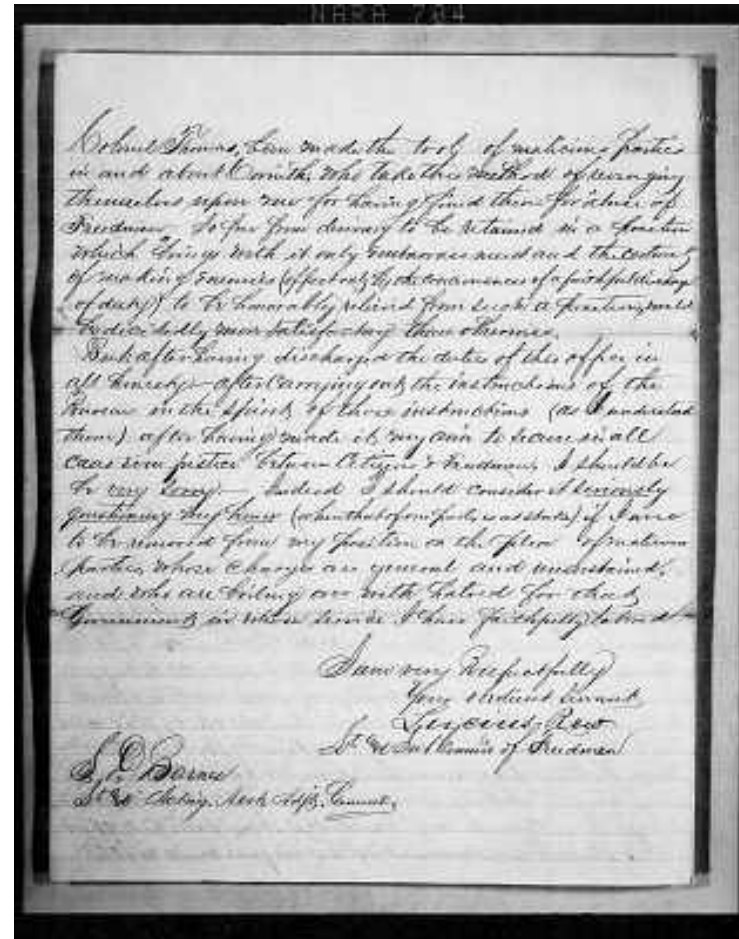 NARA 704
Colonel Thomas, been made the tool of malicious parties
in and about Corinth, who take this method of revenging
themselves upon me for having fined them for abuse of
Freedmen. So far from desiring to be retained in a position
which brings with it only and the
of making Enemies (effected by the of a faithful discharge
of duty) to be honorably relieved from such a position, would
be decidedly more satisfactory than otherwise.
But after having discharged the duties of this office in
all honesty – after carrying out the instructions of the
Bureau in the Spirit of those instructions (as I understood
them) after having made it my aim to secure in all
cases justice between Citizens & Freedmen, I should be
be very sorry – Indeed I should consider it seriously
questioning my honor (when that of is at stake) if I were
to be removed from my position on the plea of malicious
parties, whose charges are general and unsustained,
and who are boiling over with hatred for that
Government in whose service I have faithfully labored
I am very Respectfully
Your obedient Servant
Lt & Sub Commis of Freedmen
S. D. Barnes
Lt & Acting Asst Adjt. General.